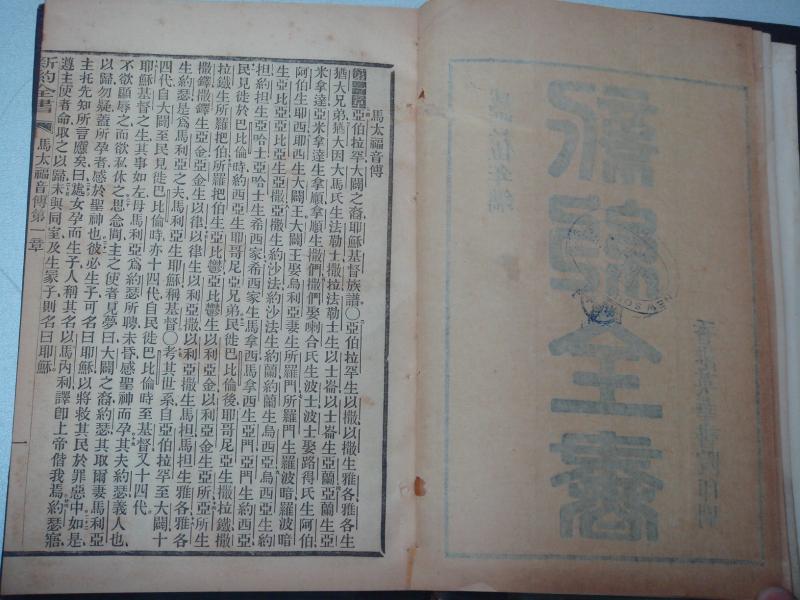 馬太福音傳
亞伯拉罕大闢之裔耶穌基督族譜〇亞伯拉罕生以撒以撒生雅各雅各生
猶大兄弟猶大因大馬氏生法勒士撒拉法勒士生以士崙以士崙生亞蘭亞蘭生亞
米拿達亞米拿達生拿順拿順生撒們撒們娶喇合氏生波士波士娶路得氏生阿伯
阿伯生耶西耶西生大闢王大闢王娶烏利亞妻生所羅門所羅門生羅波暗羅波暗
生亞比亞亞比亞生亞撒亞撒生約沙法約沙法生約蘭約蘭生烏西亞烏西亞生約
坦約坦生亞哈士亞哈士生希西家希西家生馬拿西馬拿西生亞門亞門生約西亞
民見徙於巴比倫時約西亞生耶哥尼亞兄弟民徙巴比倫後耶哥尼亞生撒拉鐵撒
拉鐵生所羅把伯所羅把伯生亞比鬱亞比鬱生以利亞金以利亞金生亞所亞所生
撒鐸撒鐸生亞金亞金生以律以律生以利亞撒以利亞撒生馬担馬担生雅各雅各
生約瑟是爲馬利亞之夫馬利亞生耶穌稱基督〇考其世系自亞伯拉罕至大闢十
四代自大闢至民見徙巴比倫時亦十四代自民徙巴比倫時至基督又十四代〇
耶穌基督之生其事如左母馬利亞爲約瑟所聘未昏感聖神而孕其夫約瑟義人也
不欲顯辱之而欲私休之思念間主之使者見夢曰大闢之裔約瑟其取爾妻馬利亞
以歸勿疑蓋所孕者感於聖神也彼必生子可名曰耶穌以將救其民於罪惡中如是
主托先知所言應矣曰處女孕而生子人稱其名以馬內利譯卽上帝偕我焉約瑟寤
遵主使者命取之以歸未與同室及生冢子則名曰耶穌
新約全書 馬太福音傳第一章 一